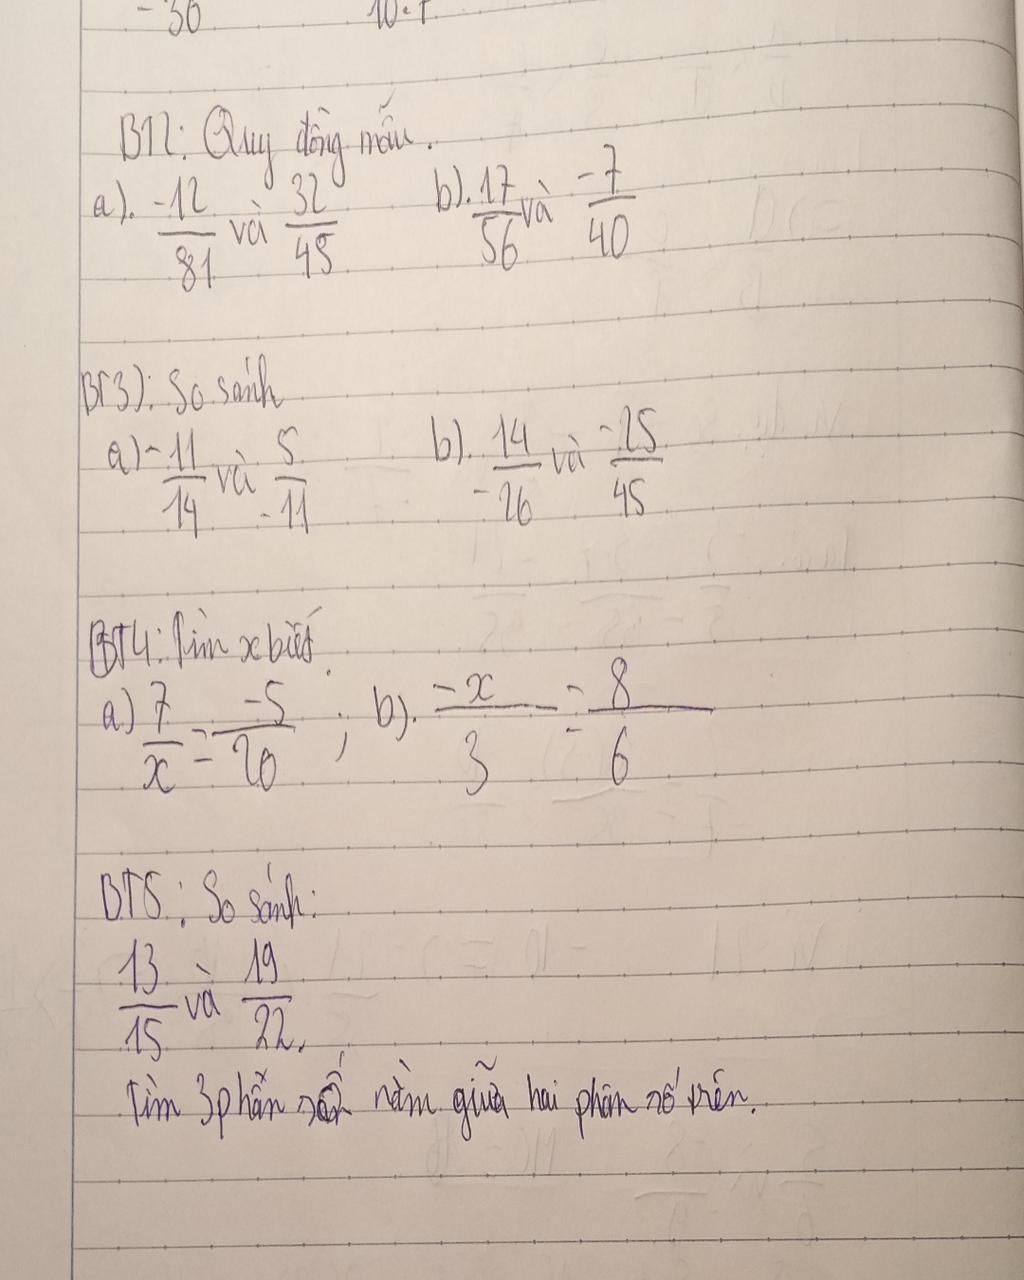 -30 10.7
BT2: Quy đồng mẫu.
a). -12/81 và 32/45 b). 17/56 và -7/40
BT3): So sánh
a) -11/14 và 5/-11 b). 14/-26 và -25/45
BT4: Tìm x biết
a) 7/x = -5/20 ; b). -x/3 = 8/6
BT5: So sánh:
13/15 và 19/22.
Tìm 3 phân số nằm giữa hai phân số trên.